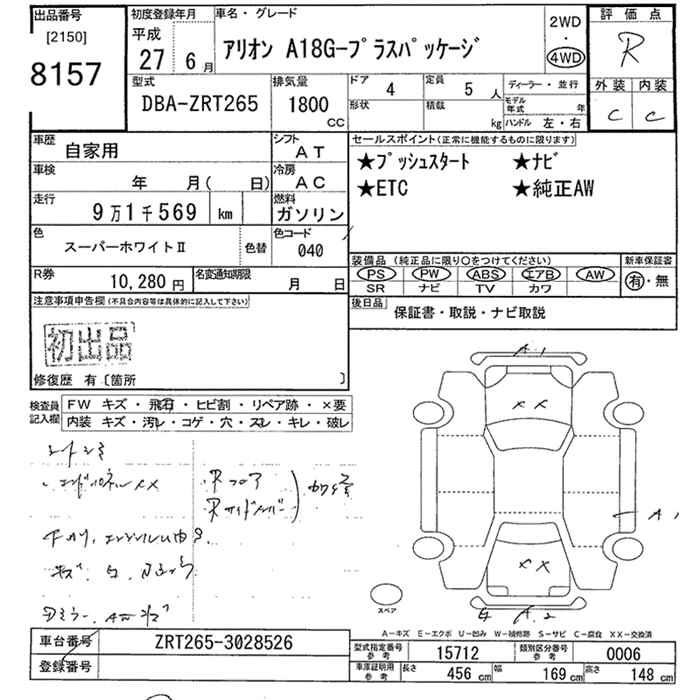 出品番号
[2150]
8157
初度登録年月
平成
27 6月
車名・グレード
アリオン A18G-プラスパッケージ
2WD
・
4WD
評価点
R
外装 内装
C C
型式
DBA-ZRT265
排気量
1800
CC
ドア 4
定員 5 人
形状
積載 kg
ディーラー・並行
モデル年式 年
ハンドル 左・右
車歴
自家用
シフト
AT
車検
年 月( 日)
冷房
AC
走行
9万1千569 km
燃料
ガソリン
色
スーパーホワイトⅡ
色替
色コード
040
R券
10,280円
名変通知期限
月 日
セールスポイント(正常に機能するものに限ります)
★プッシュスタート ★ナビ
★ETC ★純正AW
装備品(純正品に限り○をつけてください)
PS PW ABS エアB AW
SR ナビ TV カワ
新車保証書
有・無
後日品
保証書・取説・ナビ取説
注意事項申告欄(不具合内容等は具体的に記入して下さい)
初出品
修復歴 有〔箇所 〕
検査員記入欄
FW キズ・飛石・ヒビ割・リペア跡・×要
内装 キズ・汚レ・コゲ・穴・スレ・キレ・破レ
A.1
XX
A1
XX
A.2
スペア
A-キズ E-エクボ U-凹み W-補修跡 S-サビ C-腐食 XX-交換済
車台番号
ZRT265-3028526
登録番号
型式指定番号 参考
15712
類別区分番号 参考
0006
車庫証明用 参考
長さ 456 cm
幅 169 cm
高さ 148 cm